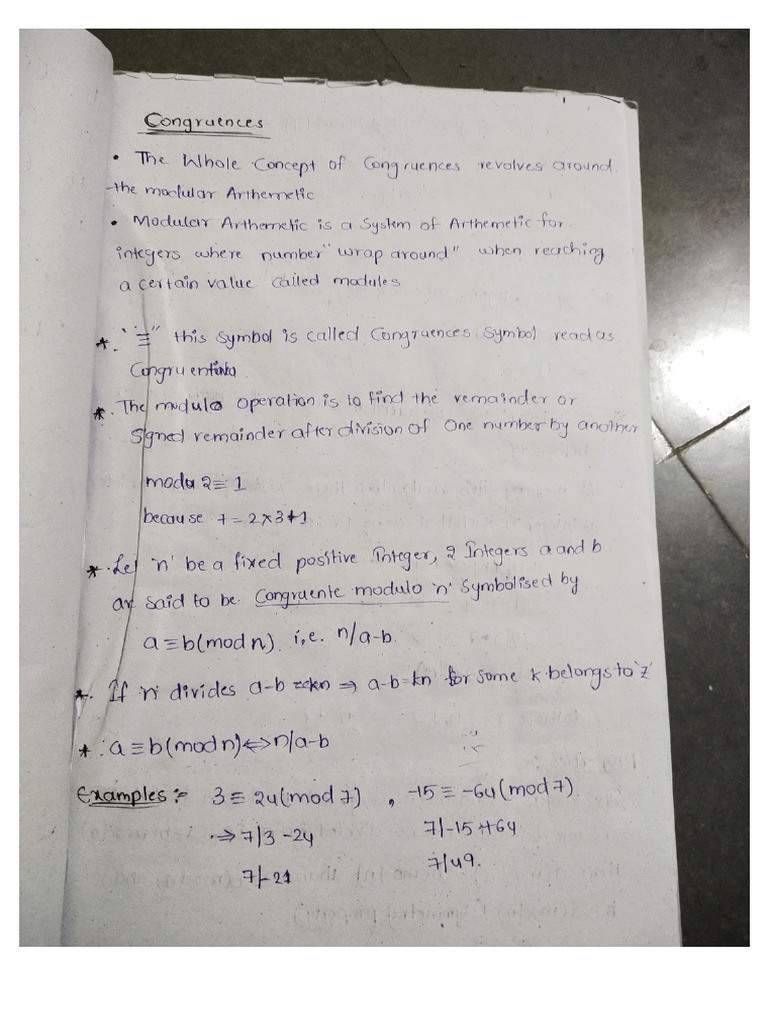 Congruences
• The Whole Concept of Congruences revolves around
the modular Arthemetic
• Modular Arthemetic is a System of Arthemetic for
integers where number "wrap around" when reaching
a certain value called modules
*. "≡" this symbol is called Congruences Symbol read as
Congruent
*. The modulo operation is to find the remainder or
Signed remainder after division of One number by another
2 ≡ 1
because 7 = 2×3+1
*. Let 'n' be a fixed positive Integer, 2 Integers a and b
are said to be Congruente modulo 'n' Symbolised by
a ≡ b(mod n) i,e. n/a-b.
*. If 'n' divides a-b ⇒ a-b=kn for some k belongs to 'z'
*: a ≡ b(mod n) ⇔ n/a-b
Examples:- 3 ≡ 24(mod 7) , -15 ≡ -64(mod 7)
⇒ 7/3-24 7/-15+64
7/-21 7/49.